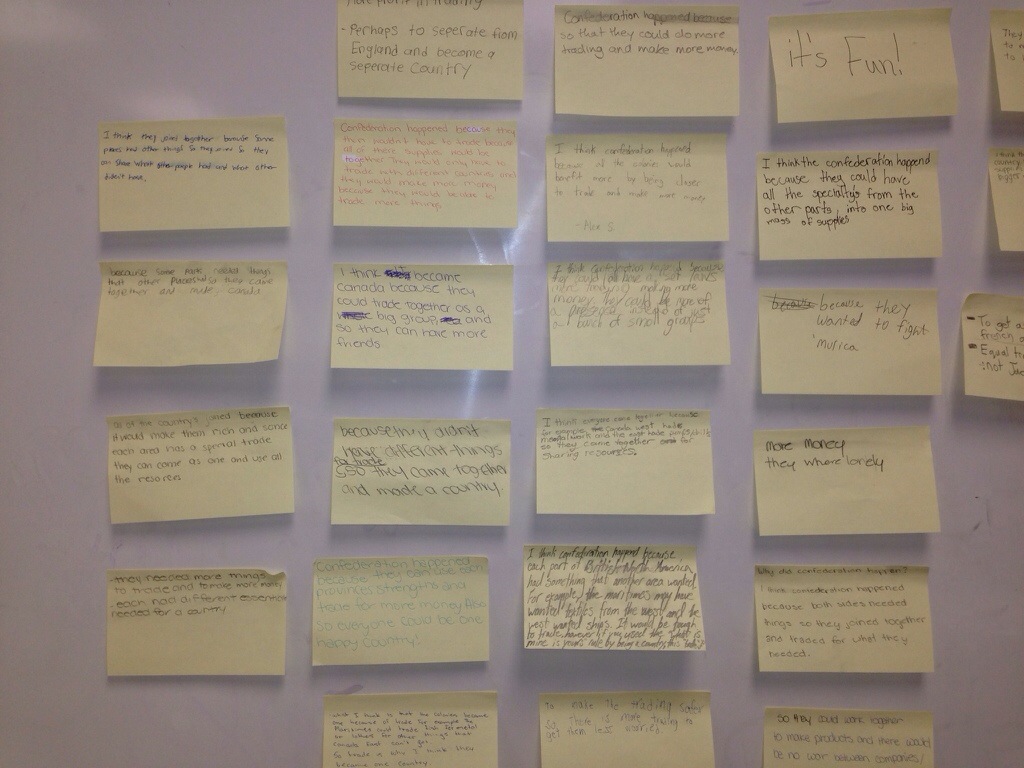 More profit in trading
- Perhaps to seperate from
England and become a
seperate Country
Confederation happened because
so that they could do more
trading and make more money.
it's Fun!
They
to
to
I think they joined together because some
places had other things so they joined so they
can share what people had and what other
didn't have.
Confederation happened because they
then wouldn't have to trade because
all of there supplies would be
together. They would only have to
trade with different countries and
they would make more money
because they would be able to
trade more things
I think confederation happened
because all the colonies would
benefit more by being closer
to trade and make more money
- Alex S.
I think the confederation happend
because they could have
all the specialtys from the
other parts, into one big
mass of supplies
I think
country
bigger
because some parts needed things
that other places had so they came
together and made Canada
I think became
Canada because they
could trade together as a
big group and
so they can have more
friends
I think confederation happend because
they could all have
making more
money. They could be more of
a presence instead of just
a bunch of small groups
because they
wanted to fight
'murica
- To get a
french
- Equal
not
all of the country's joined because
it would make them rich and sence
each area has a special trade
they can come as one and use all
the resorces
because they didn't
have different things
to trade
so they came together
and made a country.
I think everyone came together because
for example, Canada west had
metal work and the east had
so they came together for
sharing resources.
more money
they where lonely
- they needed more things
to trade and to make more money
- each had different essentials
needed for a country
Confederation happened
because they could
provinces strengths and
trade for more money. Also
so everyone could be one
happy Country!
I think confederation happend because
each part of British North America
had something that another area wanted
for example, the maritimes may have
wanted textiles from the west and the
west wanted ships. It would be tough
to trade however if you used the what is
mine is yours rule by being a country, this
Why did confederation happen?
I think confederation happened
because both sides needed
things so they joined together
and traded for what they
needed.
what I think is that the colonies became
one because of trade for example the
Maritimes could trade fish for metal
or lumber for other things that
canada East can't get.
So trade is why I think they
became one country.
To make the trading safer
so there is more trading to
get them less worries.
So they could work together
to make products and there would
be no war between companies/